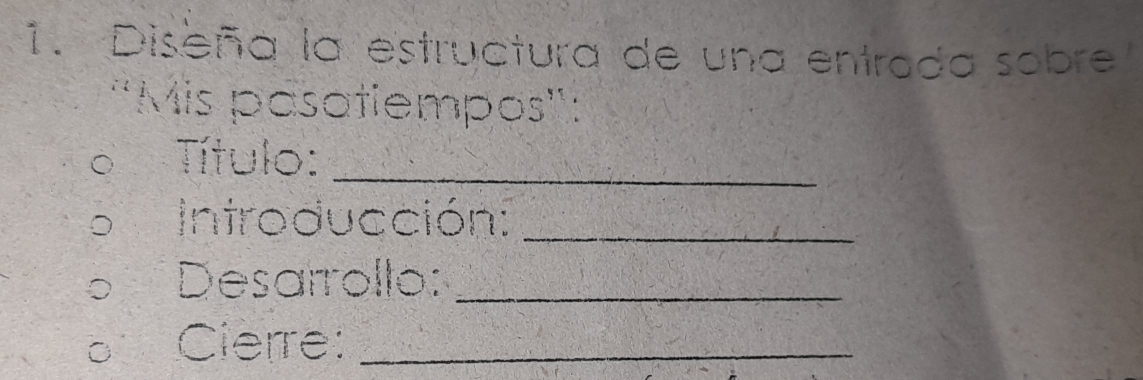 1. Diseña la estructura de una entrada sobre
"Mis pasatiempos":
o Título: ____________
o Introducción: ____________
o Desarrollo: ____________
o Cierre: ____________